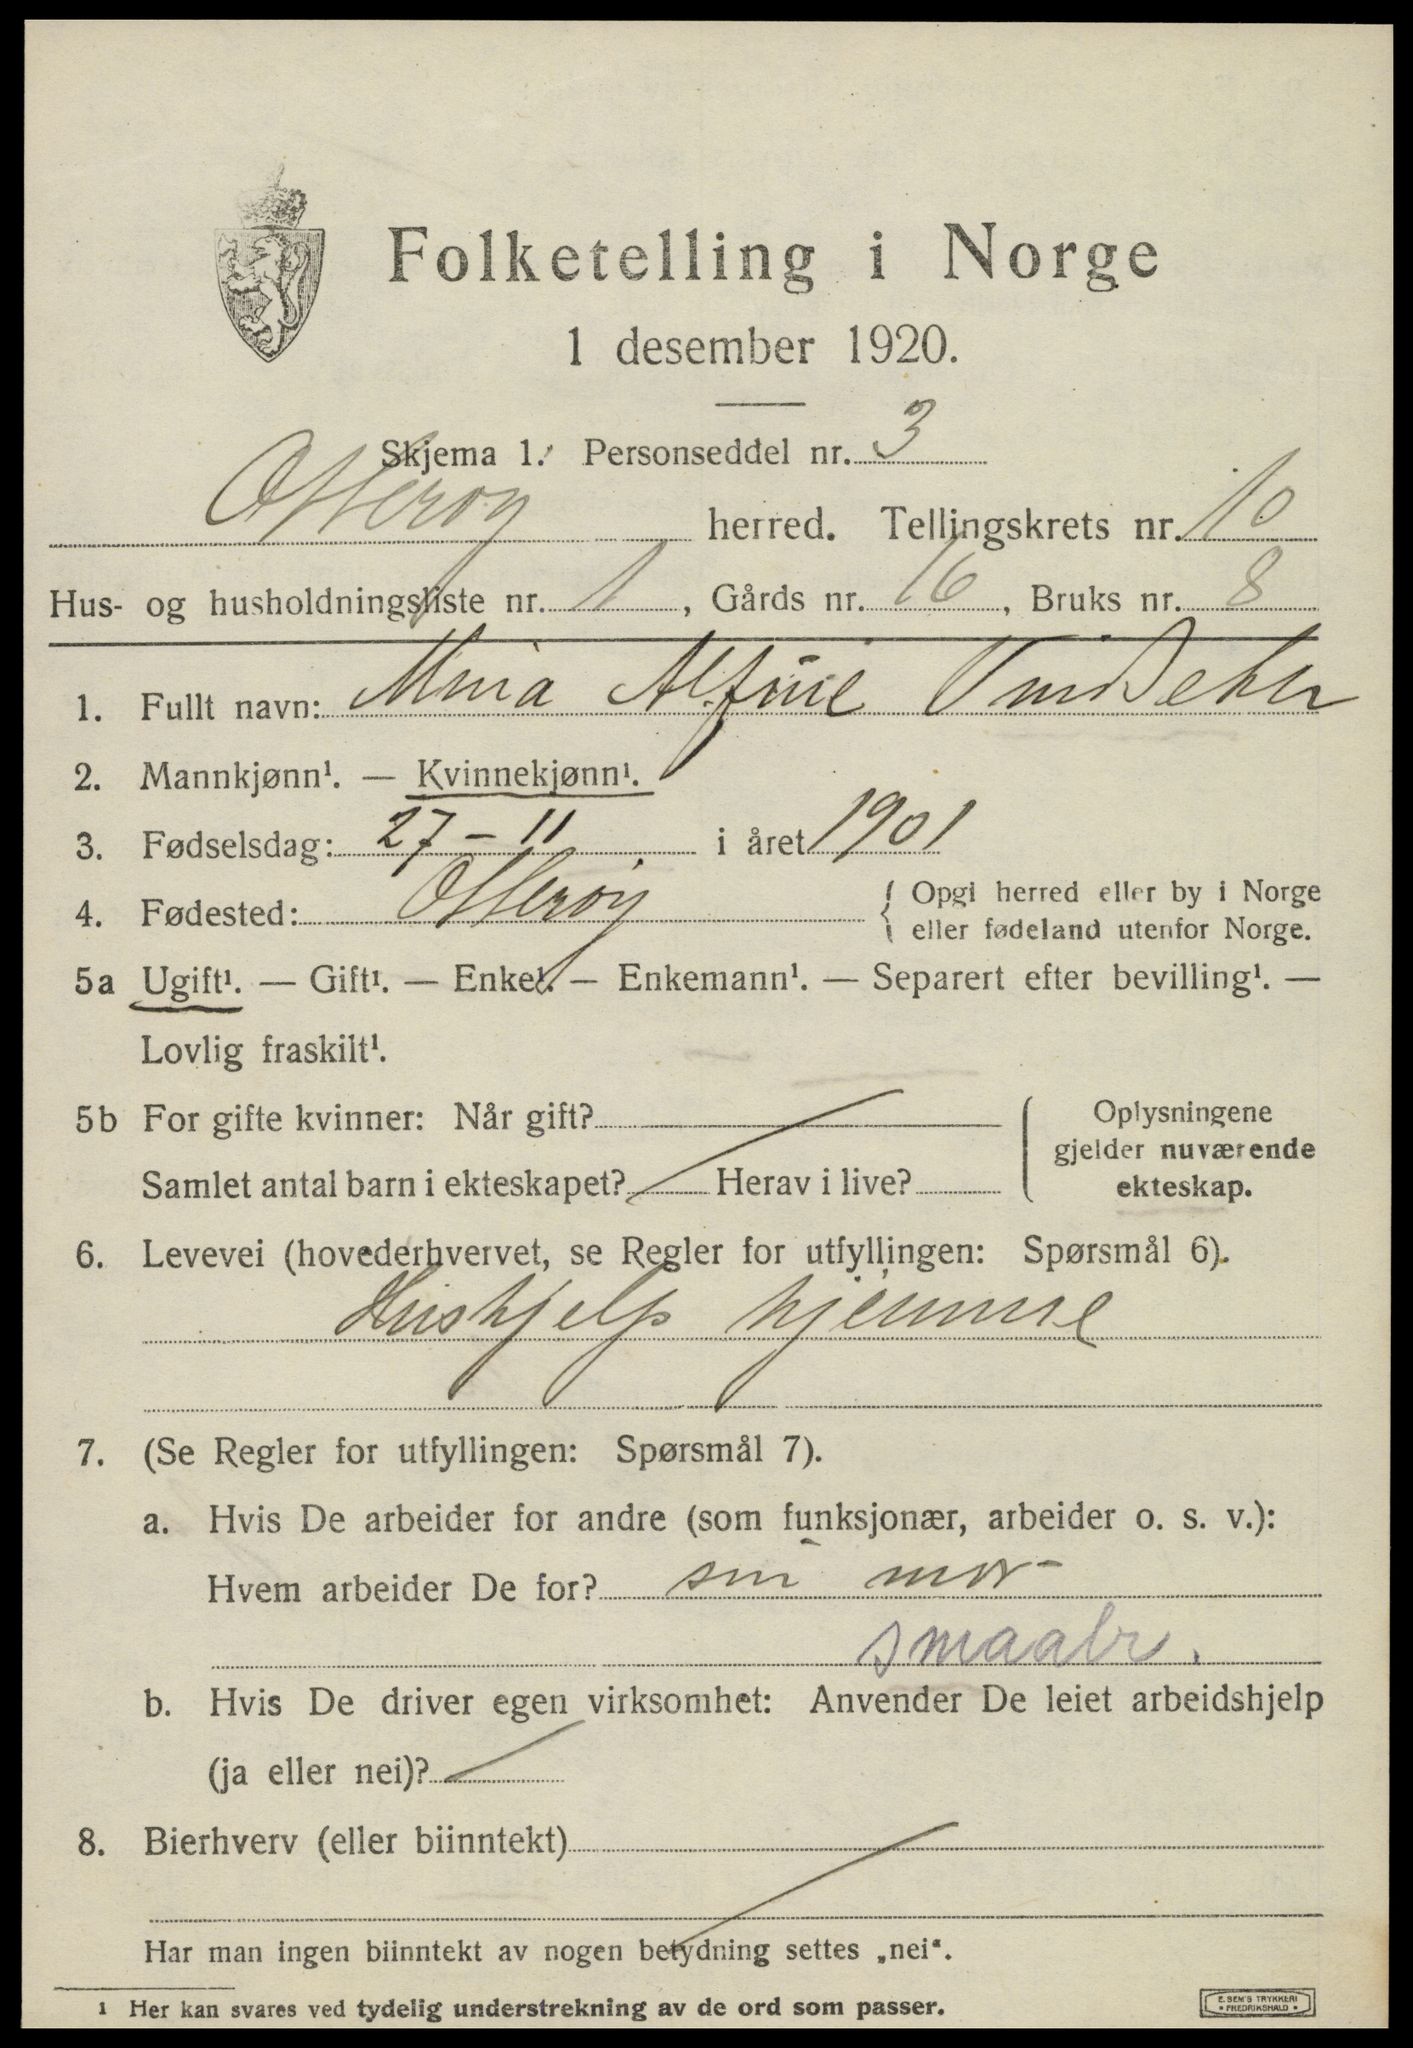 Folketelling i Norge
1 desember 1920.
Skjema 1. Personseddel nr. 3
Otterøy herred. Tellingskrets nr. 10
Hus- og husholdningsliste nr. 1, Gårds nr. 16, Bruks nr. 8
1. Fullt navn: Mina Alfine
2. Mannkjønn¹. — Kvinnekjønn¹.
3. Fødselsdag: 27 - 11 i året 1901
4. Fødested: Otterøy { Opgi herred eller by i Norge
eller fødeland utenfor Norge.
5a Ugift¹. — Gift¹. — Enke¹. — Enkemann¹. — Separert efter bevilling¹. —
Lovlig fraskilt¹.
5b For gifte kvinner: Når gift?
Samlet antal barn i ekteskapet? Herav i live?
{ Oplysningene
gjelder nuværende
ekteskap.
6. Levevei (hovederhvervet, se Regler for utfyllingen: Spørsmål 6).
Hushjelp hjemme
7. (Se Regler for utfyllingen: Spørsmål 7).
a. Hvis De arbeider for andre (som funksjonær, arbeider o. s. v.):
Hvem arbeider De for? sin mor
smaabr.
b. Hvis De driver egen virksomhet: Anvender De leiet arbeidshjelp
(ja eller nei)?
8. Bierhverv (eller biinntekt)
Har man ingen biinntekt av nogen betydning settes „nei“.
1 Her kan svares ved tydelig understrekning av de ord som passer.
E. SEM'S TRYKKERI
• FREDRIKSHALD •